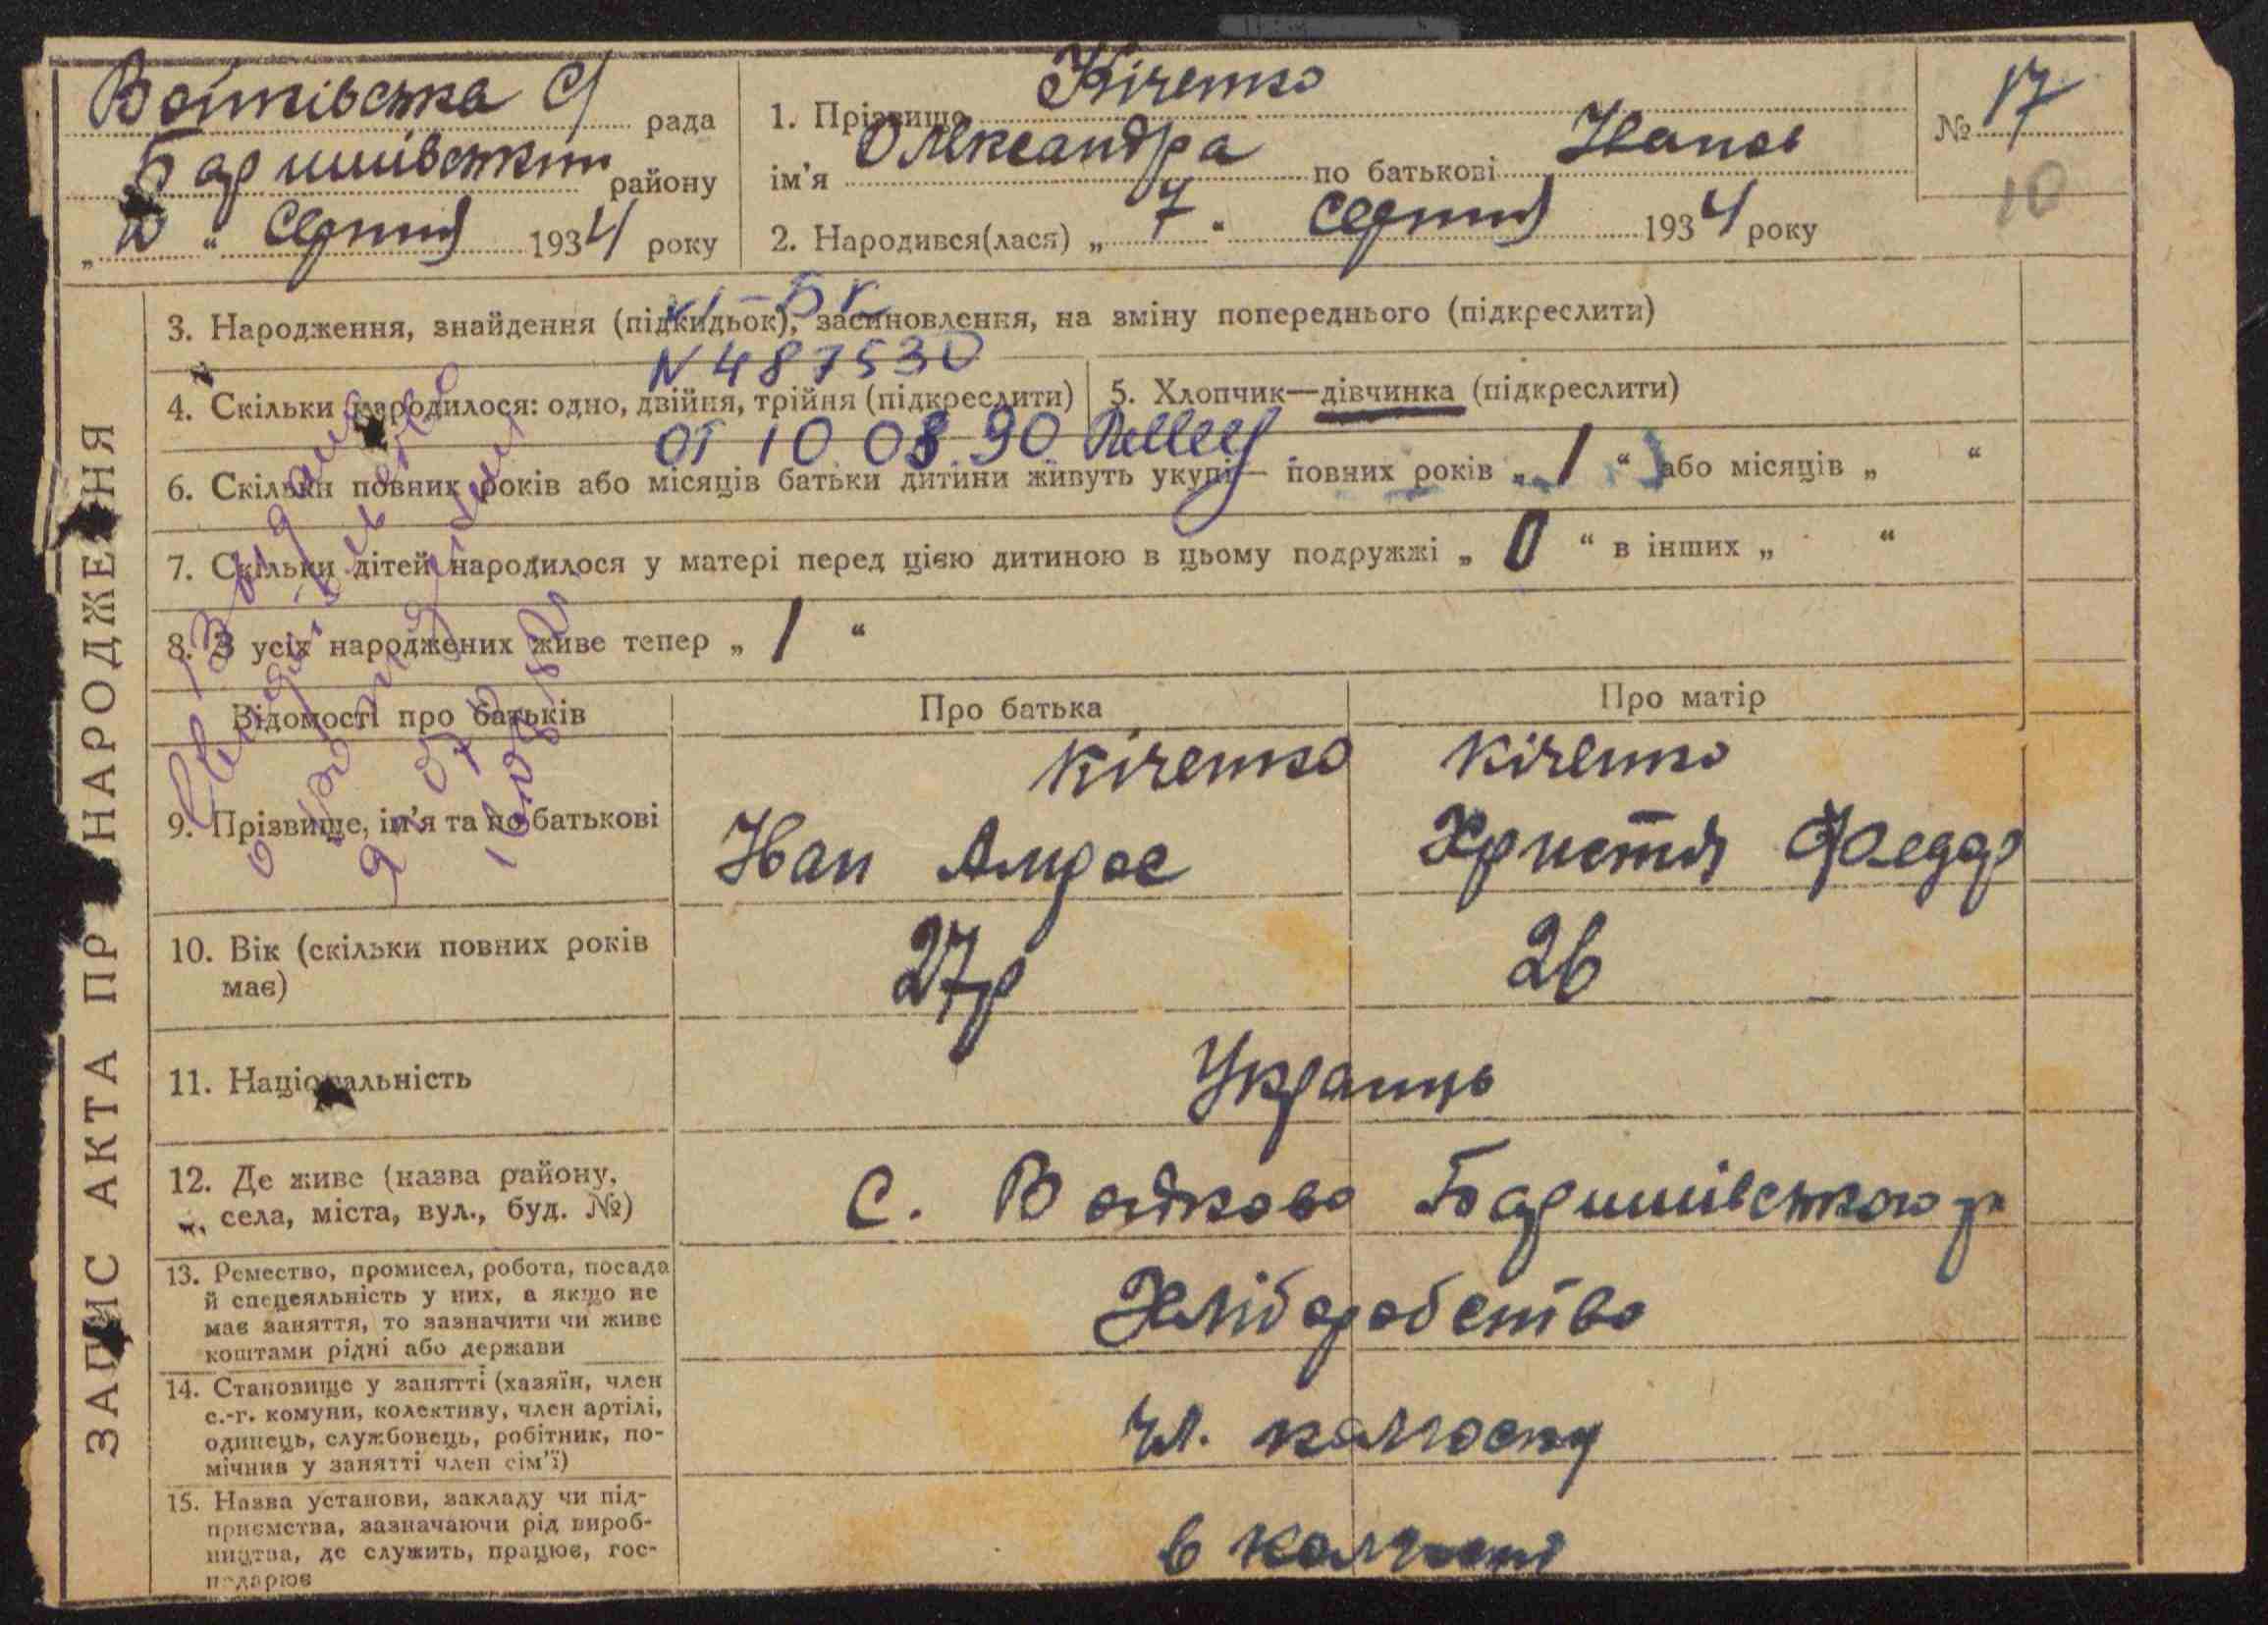 Войтківська С/ рада
Баришівський району
„ 10 “ Серпня 1934 року
1. Прізвище Кіченко
ім'я Олександра по батькові Іванов
2. Народився(лася) „ 7 “ Серпня 1934 року
№ 17
10
ЗАПИС АКТА ПР НАРОДЖЕННЯ
3. Народження, знайдення (підкидьок), засиновлення, на зміну попереднього (підкреслити)
VI-БК
N 487530
4. Скільки народилося: одно, двійня, трійня (підкреслити)
5. Хлопчик—дівчинка (підкреслити)
от 10 08. 90
6. Скільки повних років або місяців батьки дитини живуть укупі— повних років „ 1 “ або місяців „ “
7. Скільки дітей народилося у матері перед цією дитиною в цьому подружжі „ 0 “ в інших „ “
8. З усіх народжених живе тепер „ 1 “
Відомості про батьків
Про батька
Про матір
9. Прізвище, ім'я та по батькові
Кіченко
Іван Андрос
Кіченко
Христя Федор
10. Вік (скільки повних років
має)
27р
26
11. Національність
Украинць
12. Де живе (назва району,
села, міста, вул., буд. №)
с. Войтково Баришівського р-
13. Ремество, промисел, робота, посада
й спецеяльність у них, а якщо не
має заняття, то зазначити чи живе
коштами рідні або держави
Хліборобство
14. Становище у занятті (хазяїн, член
с.-г. комуни, колективу, член артілі,
одинець, службовець, робітник, по-
мічник у занятті член сім'ї)
чл. колгоспу
15. Назва установи, закладу чи під-
приємства, зазначаючи рід вироб-
ництва, де служить, працює, гос-
подарює
в колгоспі